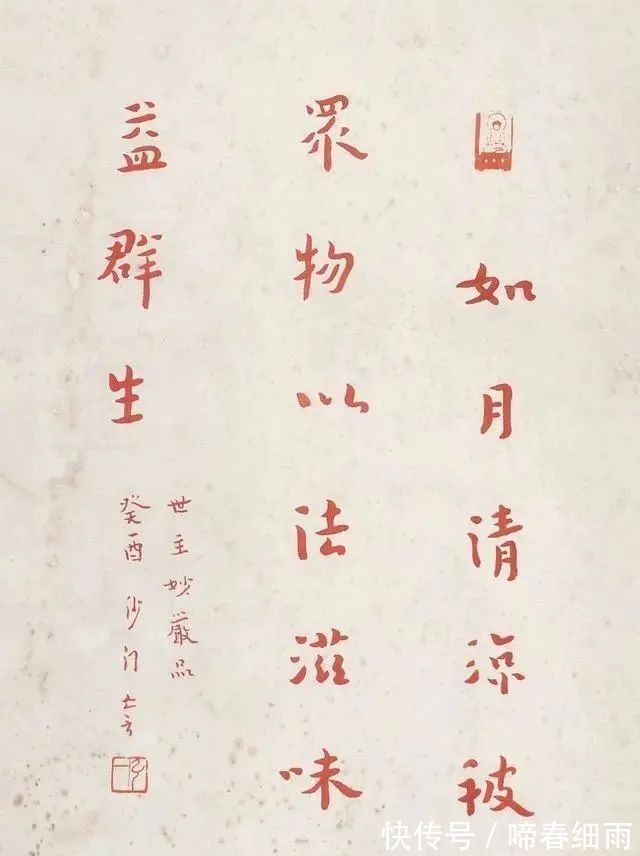 如月清涼被
眾物以法滋味
益群生
世主妙嚴品
癸酉沙门
快传号/啼春细雨